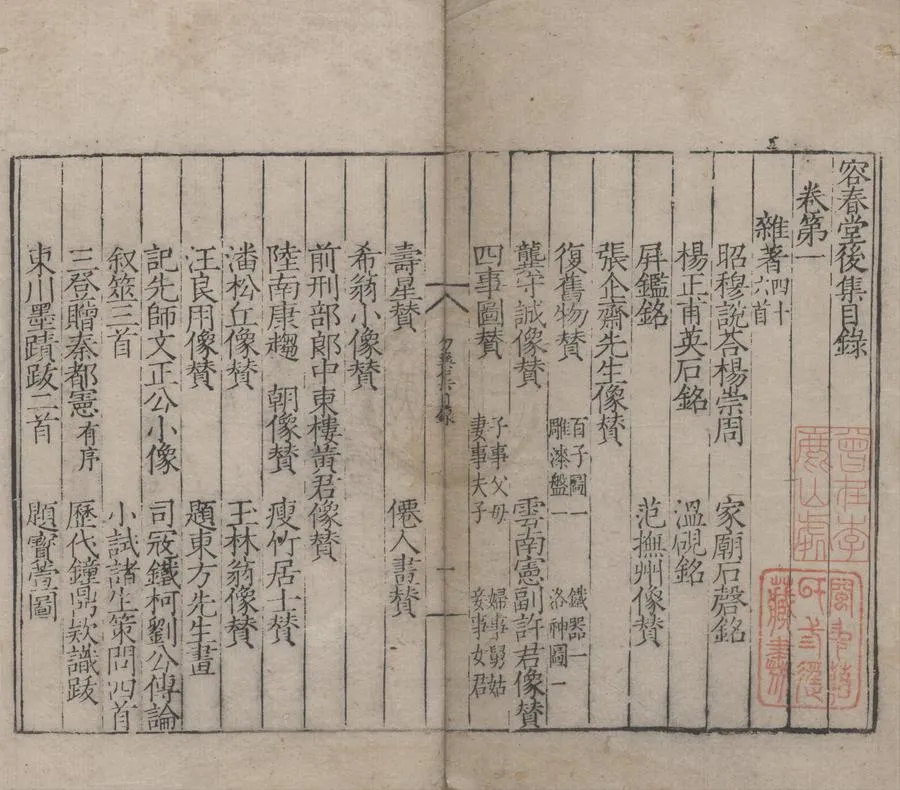 容春堂後集目錄
卷第一
雜著四十六首
昭穆說荅楊崇周 家廟石磬銘
楊正甫英石銘 溫硯銘
屏鑑銘 范撫州像贊
張企齋先生像贊
復舊物贊 百子圖一 雕漆盤一 鐵器一 洛神圖一
龔守誠像贊 雲南憲副許君像贊
四事圖贊 子事父母 妻事夫子 婦事舅姑 妾事女君
目錄
一
壽星贊 僊人畫贊
希翁小像贊
前刑部郎中東樓黃君像贊
陸南康趨 朝像贊 瘦竹居士贊
潘松丘像贊 玉林翁像贊
汪良用像贊 題東方先生畫
記先師文正公小像 司寇鐵柯劉公傳論
叙筮三首 小試諸生策問四首
三登贈秦都憲有序 歷代鐘鼎欵識跋
東川墨蹟跋二首 題寶萱圖
曾在李鹿山處
藏書